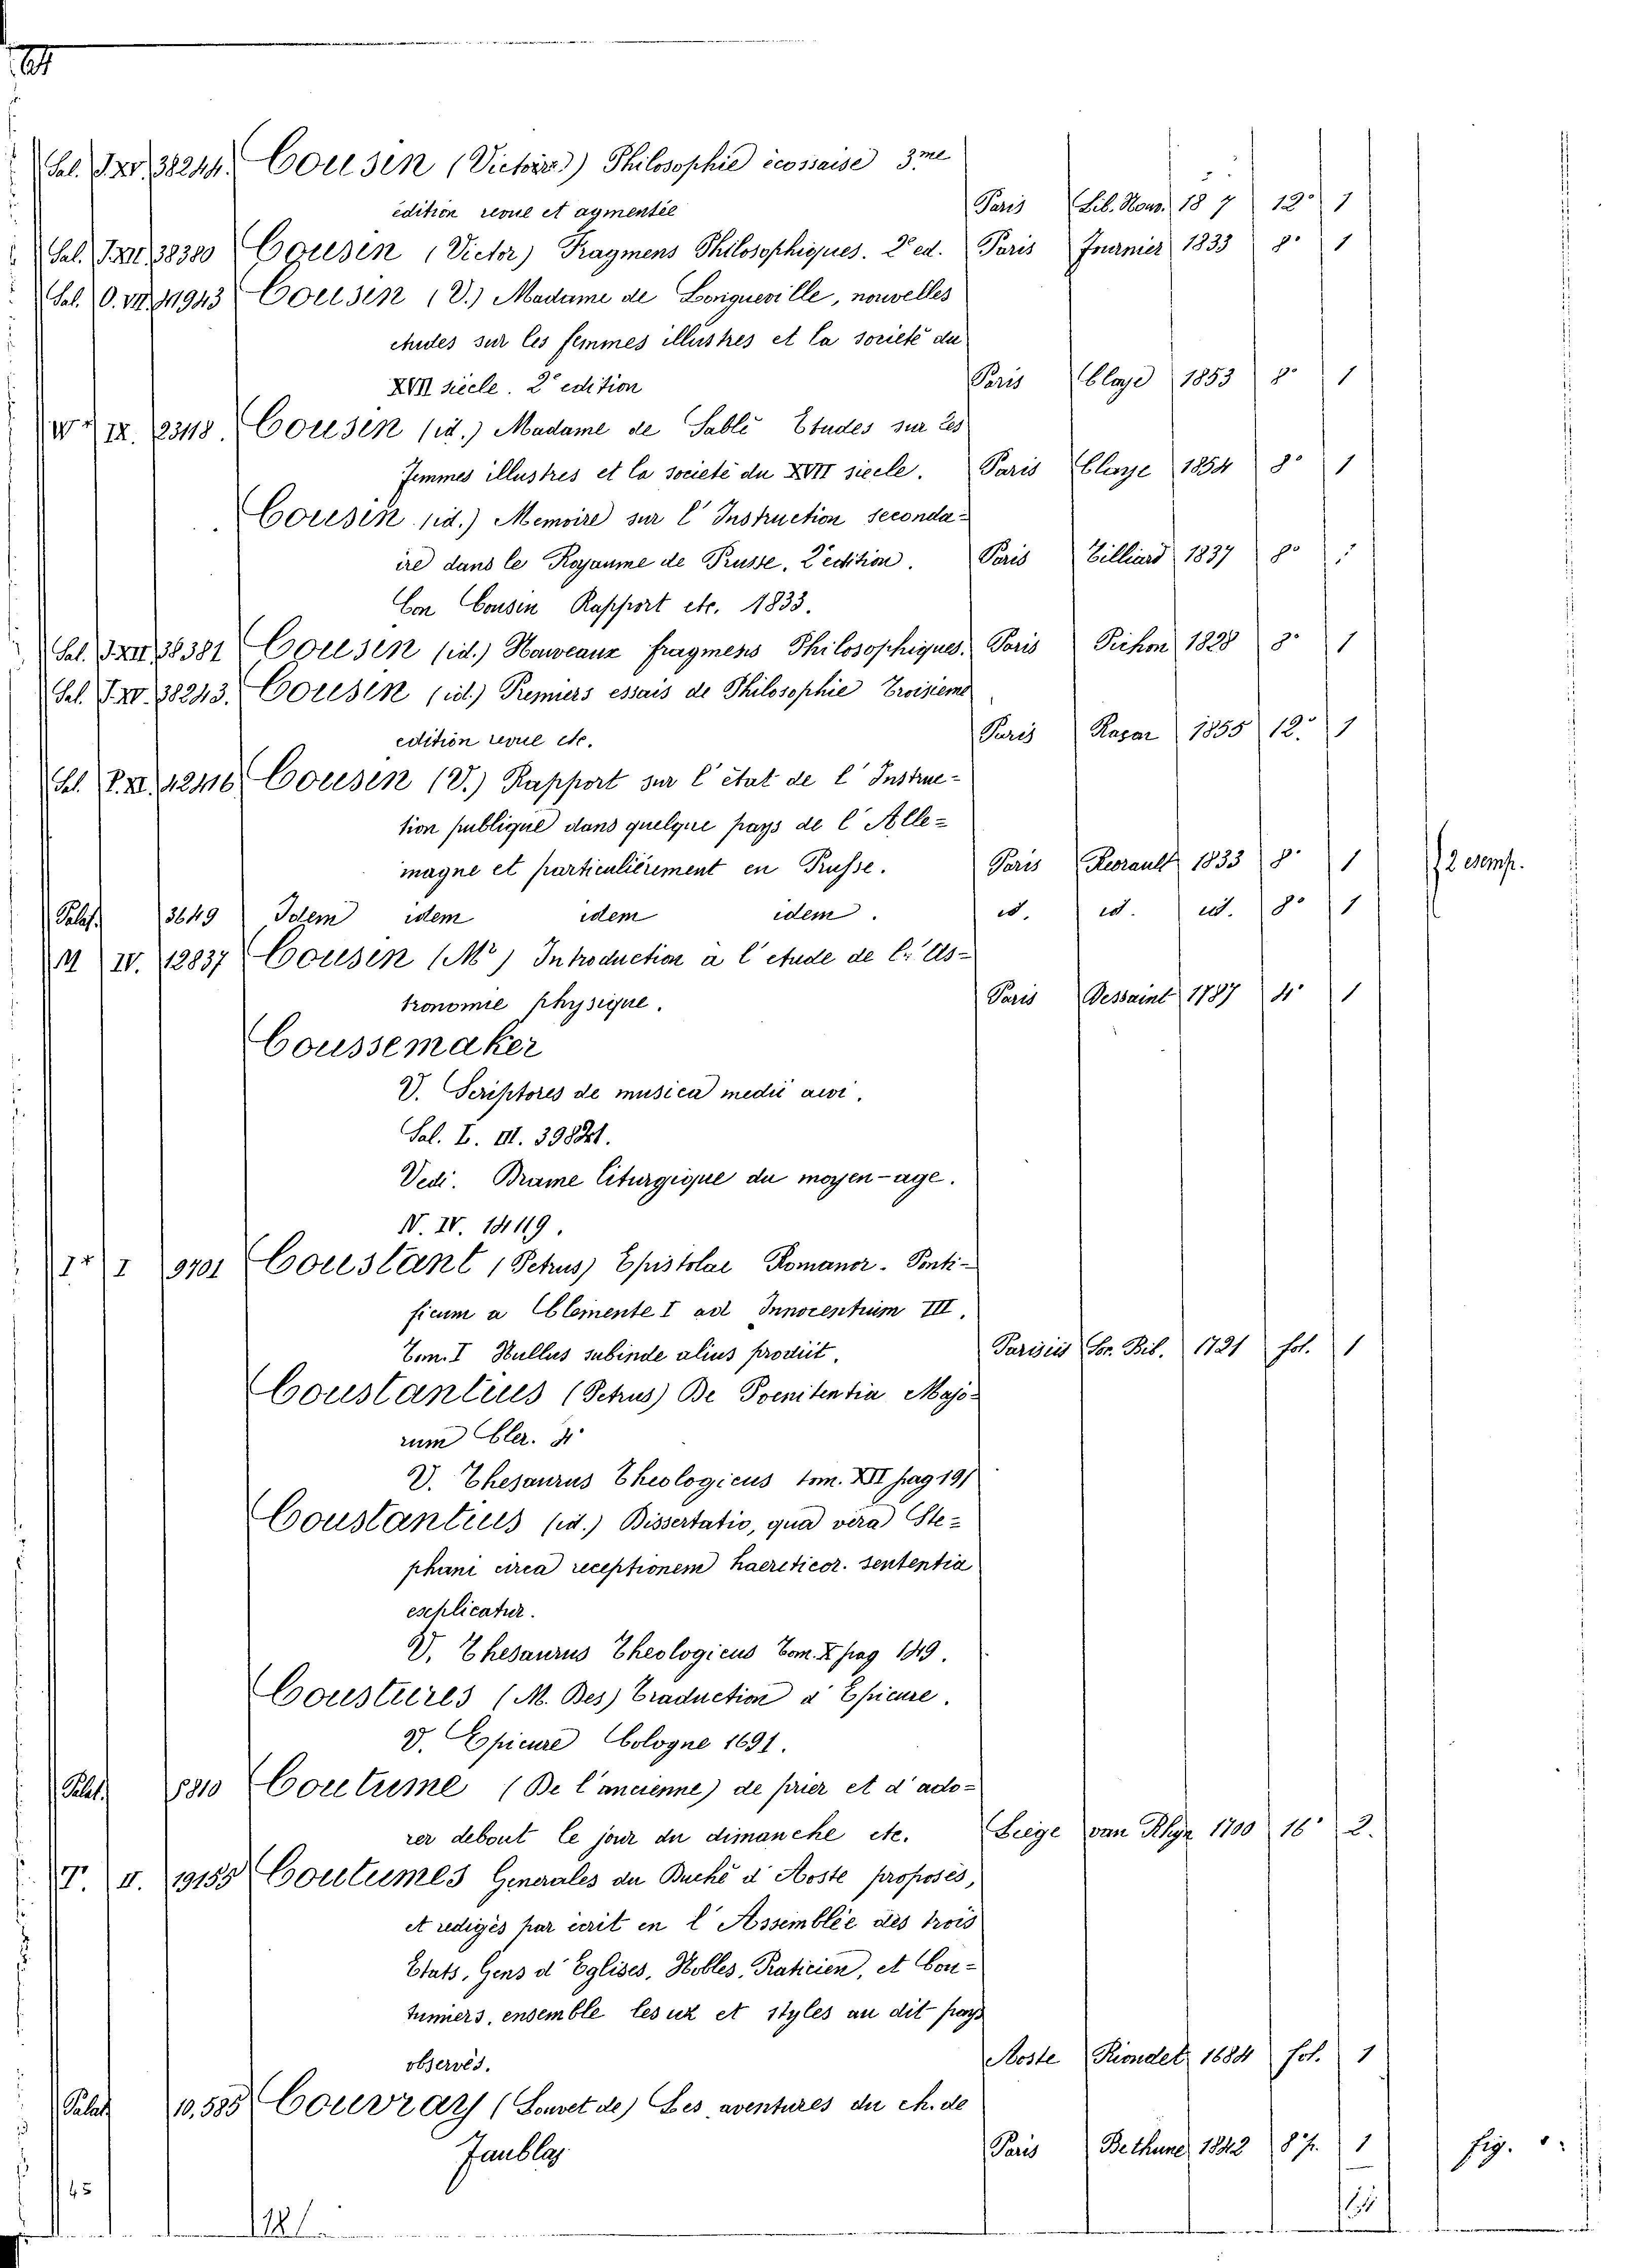 64
Sal. T.XV. 38244. Cousin (Victoire) Philosophie ècossaise 3.me
edition revue et agmentée Paris Lib. Nouv. 18 7 12° 1
Sal. T.XII. 38380 Cousin (Victor) Fragmens Philosophiques. 2.e ed. Paris Fournier 1833 8° 1
Sal. O. VII. 41943 Cousin (V.) Madame de Longueville, nouvelles
etudes sur les femmes illustres et la societè du
XVII siècle. 2e edition Paris Claye 1853 8° 1
IX. 23118. Cousin (id.) Madame de Sablé Etudes sur les
femmes illustres et la societè du XVII siecle. Paris Claye 1854 8° 1
Cousin (id.) Memoire sur l'Instruction seconda=
ire dans le Royaume de Prusse, 2.e edition. Paris Billiard 1837 8°
Con Cousin Rapport etc. 1833.
Sal. T.XII 38381 Cousin (id.) Nouveaux fragmens Philosophiques. Paris Pichon 1828 8° 1
Sal. T.XV. 38243. Cousin (id.) Premiers essais de Philosophie Troisieme
edition revue etc. Paris 1855 12° 1
Sal. P.XI. 42416 Cousin (V.) Rapport sur l'état de l'Instruc=
tion publique dans quelque pays de l'Alle=
magne et particulièrement en Prusse. Paris 1833 8° 1 2 esemp.
Palat. 3649 Idem idem idem idem. id. id. id. 8° 1
M IV. 12837 Cousin (Mr) Introduction à l'etude de l'As=
tronomie physique. Paris Dessaint 1787 4° 1
Coussemaker
V. Scriptores de musica medii aevi.
Sal. L. III. 39821.
Vedi. Drame liturgique du moyen-age.
N. IV. 14119.
I I 9701 Coustant (Petrus) Epistolae Romanor. Ponti=
ficum a Clemente I ad Innocentium III.
Tom. I Nullus subinde alius prodiit. Parisiis Bib. 1721 fol. 1
Coustantius (Petrus) De Poenitentia Majo=
rum Cler. 4°
V. Thesaurus Theologicus tom. XII pag 191
Coustantius (id.) Dissertatio, qua vera Ste=
phani circa receptionem haereticor. sententia
esplicatur.
V. Thesaurus Theologicus tom. X pag 149.
Coustures (M. Des) Traduction d'Epicure.
V. Epicure Cologne 1691.
Palat. 5810 Coutume (De l'ancienne) de prier et d'ado=
rer debout le jour du dimanche etc. Liege van Rhyn 1700 16° 2.
T. II. 19155 Coutumes Generales du Duché d'Aoste proposés,
et redigés par écrit en l'Assemblée des trois
Etats, Gens d'Eglises, Nobles, Praticien, et Cou=
tumiers, ensemble les uz et styles au dit pays
observés. Aoste Riondet 1684 fol. 1
Palat 10,585 Couvray (Louvet de) Les aventures du ch. de
Faublas Paris Bethune 1842 8° f. 1 fig.
45